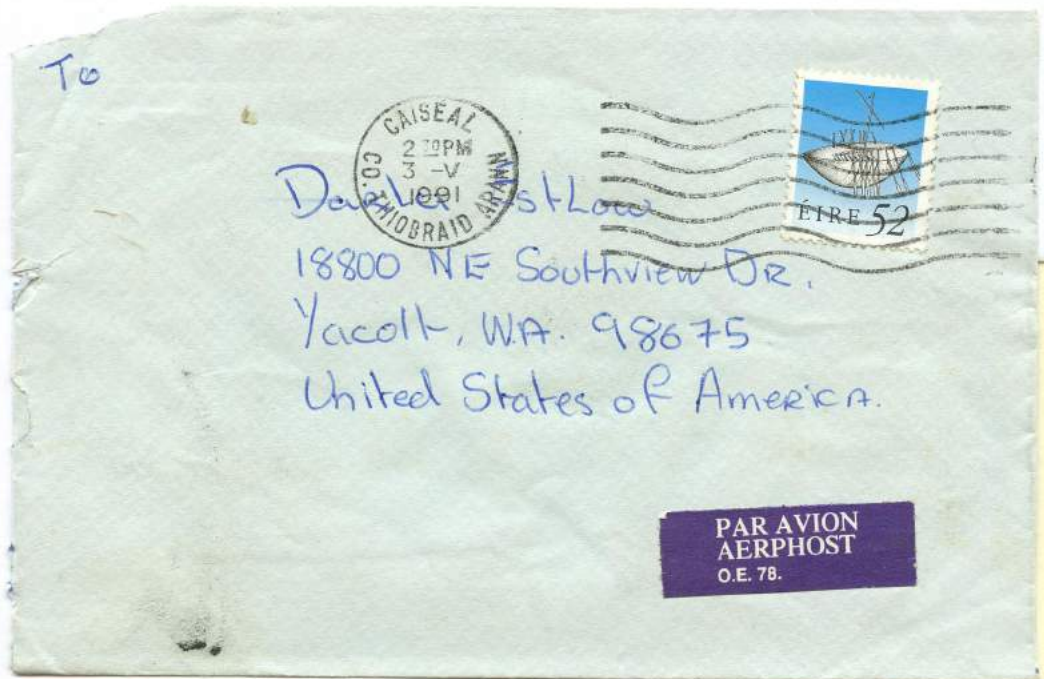 To
CAISEAL
2 30 PM
3 -V
1991
CO. THIOBRAID ARANN
ÉIRE 52
18800 NE Southview DR.
Yacolt, WA. 98675
United States of America.
PAR AVION
AERPHOST
O.E. 78.